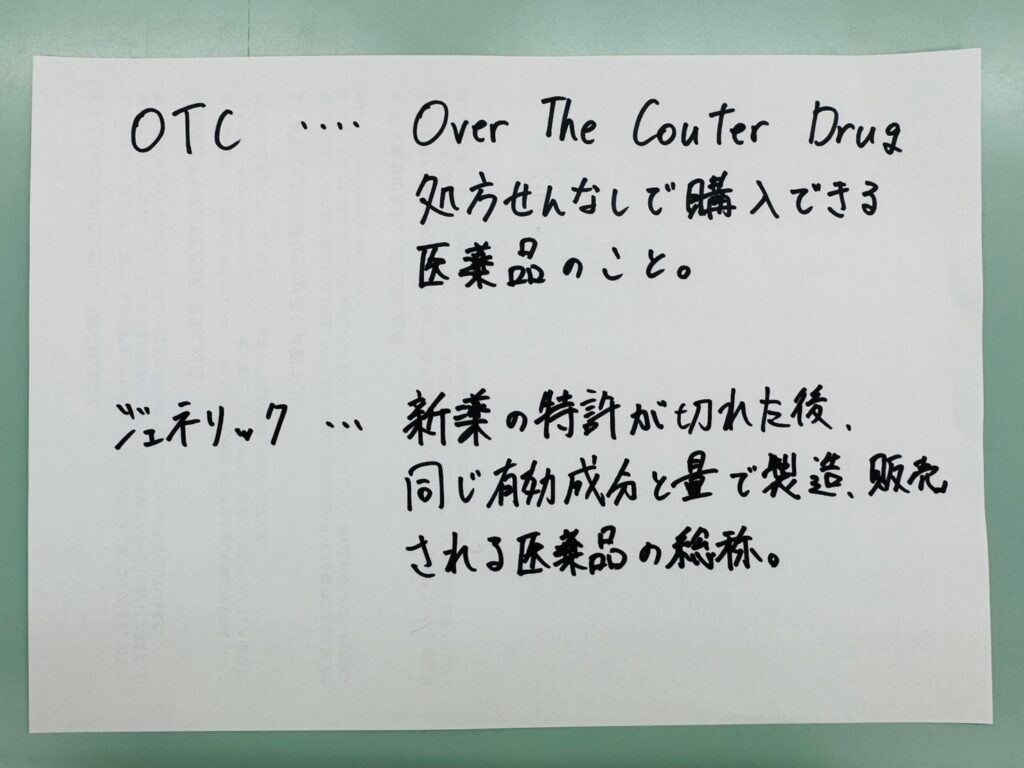 OTC ‥‥ Over The Couter Drug
処方せんなしで購入できる
医薬品のこと。
ジェネリック … 新薬の特許が切れた後、
同じ有効成分と量で製造、販売
される医薬品の総称。